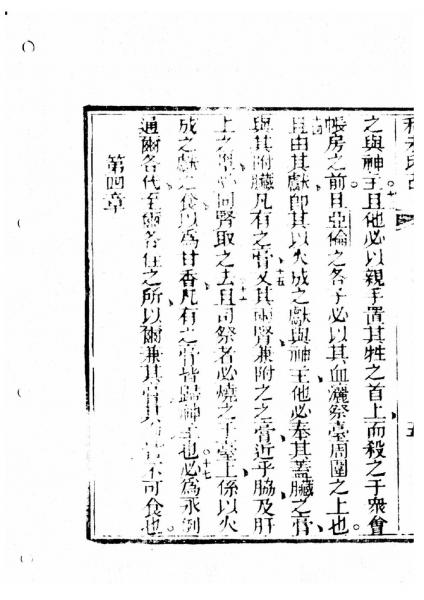 之與神主且他必以親手置其牲之首上而殺之于衆會
帳房之前且亞倫之各子必以其血灑祭臺周圍之上也
且由其獻即其以火成之獻與神主他必奉其蓋臟之膏
與其附臟凡有之膏又其兩腎兼附之之膏近乎脇及肝
上之 同腎取之去且司祭者必燒之于臺上係以火
成之獻之食以爲甘香凡有之膏皆歸神主也必爲永例
通爾各代至爾各住之所以爾兼其膏 不可食也
第四章